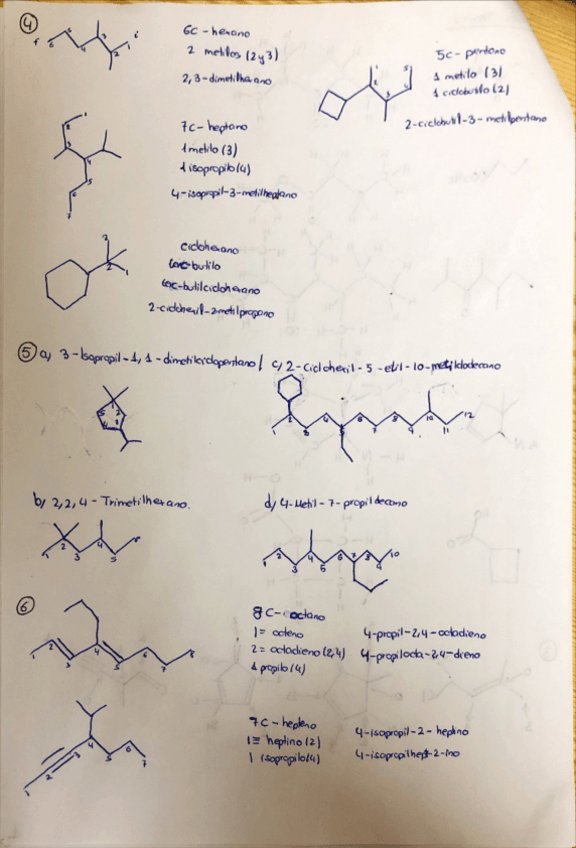 4
6C - hexano
2 metilos (2 y 3)
2,3-dimetilhexano
5C - pentano
1 metilo (3)
1 ciclobutilo (2)
2-ciclobutil-3-metilpentano
7C - heptano
1 metilo (3)
1 isopropilo (4)
4-isopropil-3-metilheptano
ciclohexano
terc-butilo
terc-butilciclohexano
2-ciclohexil-2-metilpropano
5 a) 3-Isopropil-1,1-dimetilciclopentano
c) 2-Ciclohexil-5-etil-10-metildodecano
1 2 3 4 5 6 7 8 9 10 11 12
b) 2,2,4-Trimetilhexano.
1 2 3 4 5 6
d) 4-Metil-7-propildecano
1 2 3 4 5 6 7 8 9 10
6
8C - octano
1= octeno
2= octadieno (2,4)
1 propilo (4)
4-propil-2,4-octadieno
4-propilocta-2,4-dieno
1 2 3 4 5 6 7 8
7C - hepteno
1≡ heptino (2)
1 isopropilo (4)
4-isopropil-2-heptino
4-isopropilhept-2-ino
1 2 3 4 5 6 7